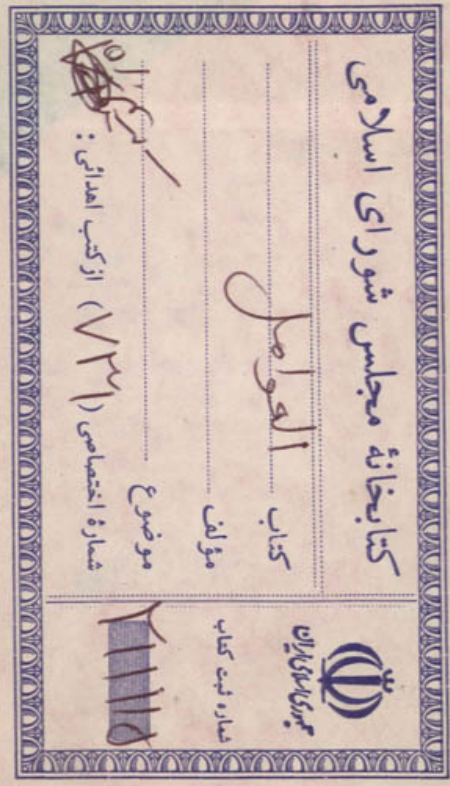 کتابخانهٔ مجلس شورای اسلامی
کتاب العوامل
مؤلف
موضوع
شمارهٔ اختصاصی (۷۳۱) از کتب اهدائی:
جمهوری اسلامی ایران
شماره ثبت کتاب